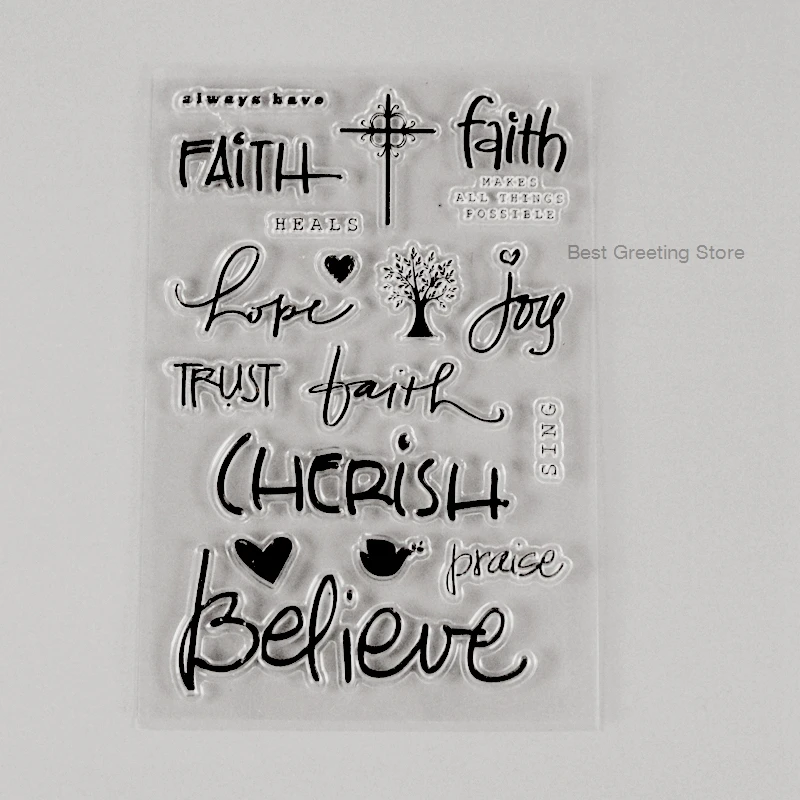 always have
FAiTH
faith
MAKES
ALL THINGS
POSSIBLE
HEALS
Best Greeting Store
hope
joy
TRUST
faith
SING
CHERiSH
praise
Believe